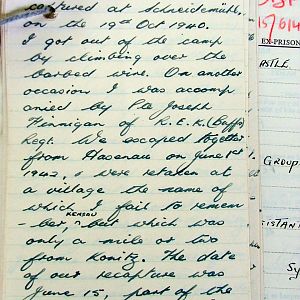 captured at Schneidemühl
on the 19th Oct 1940.
I got out of the camp
by climbing over the
barbed wire. On another
occasion I was accomp
anied by Pte Joseph
Finnigan of R.E.K. (Buffs)
Regt. We escaped together
from Hasenau on June 1st
1942, & were retaken at
a village the name of
which I fail to remem
KENSAU
-ber, but which was
only a mile or two
from Konitz. The date
of our recapture was
June 15, part of the
EX-PRISON
ASTLE.
GROUP
ISTANT
SY